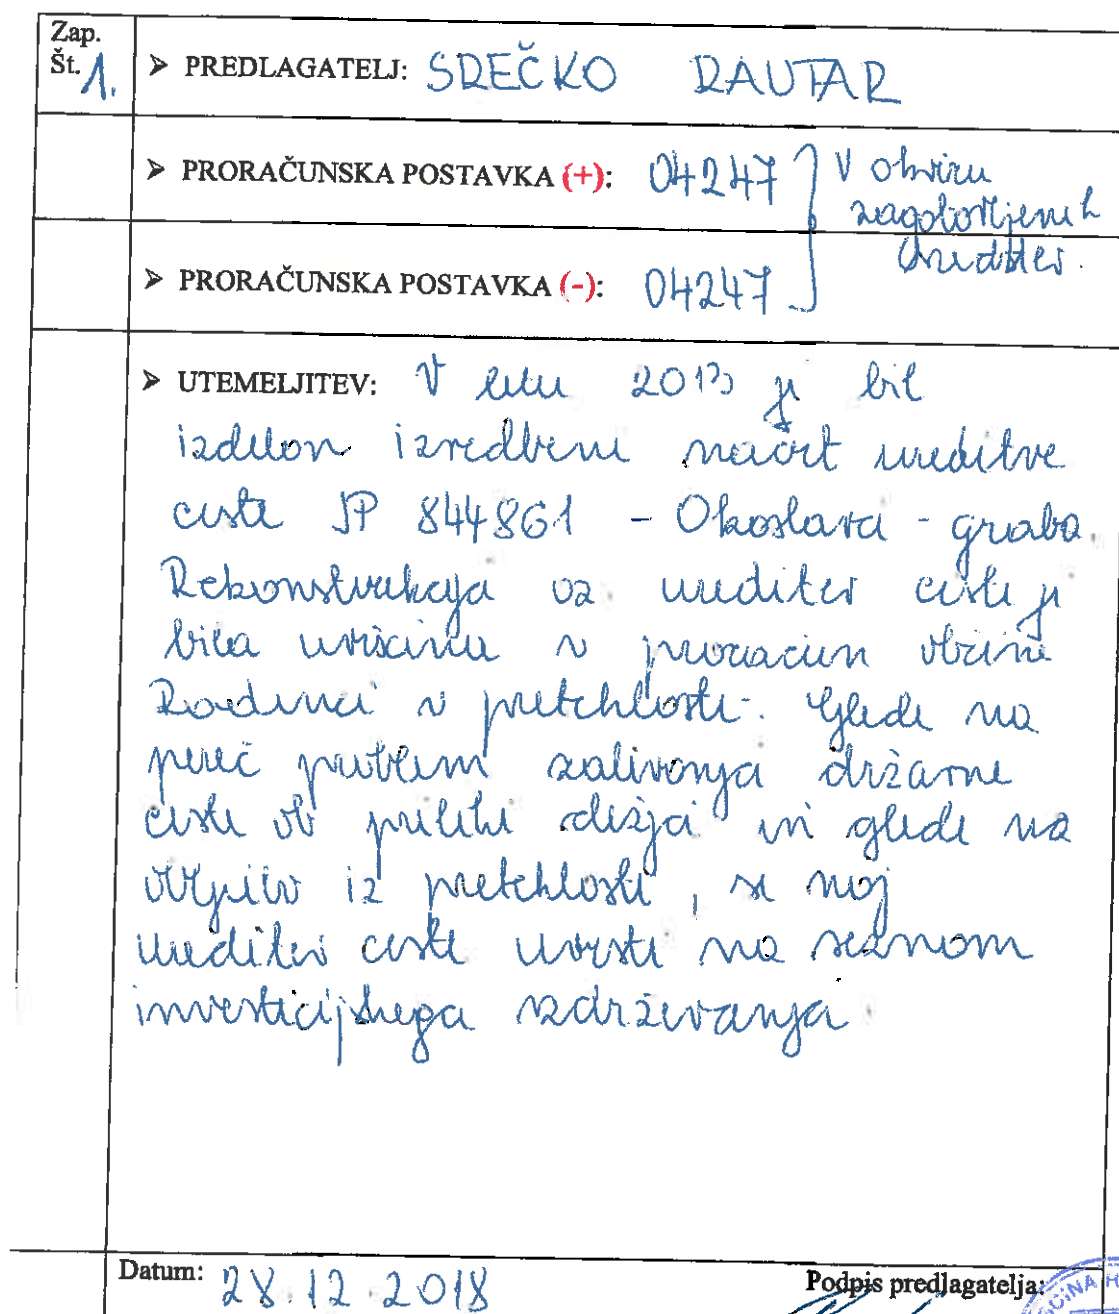 Zap.
Št. 1.
➤ PREDLAGATELJ: SREČKO RAUTAR
➤ PRORAČUNSKA POSTAVKA (+): 04247
V okviru
zagotovljenih
sredstev.
➤ PRORAČUNSKA POSTAVKA (-): 04247
➤ UTEMELJITEV: V letu 2013 je bil
izdelan izvedbeni načrt ureditve
ceste JP 844861 - Okoslavci - graba.
Rekonstrukcija oz. ureditev ceste je
bila uvrščena v proračun občine
Radenci v preteklosti. Glede na
pereč problem zalivanja državne
ceste ob prilihi dežja in glede na
obljubo iz preteklosti, se naj
ureditev ceste uvrsti na seznam
investicijskega vzdrževanja
Datum: 28.12.2018
Podpis predlagatelja: